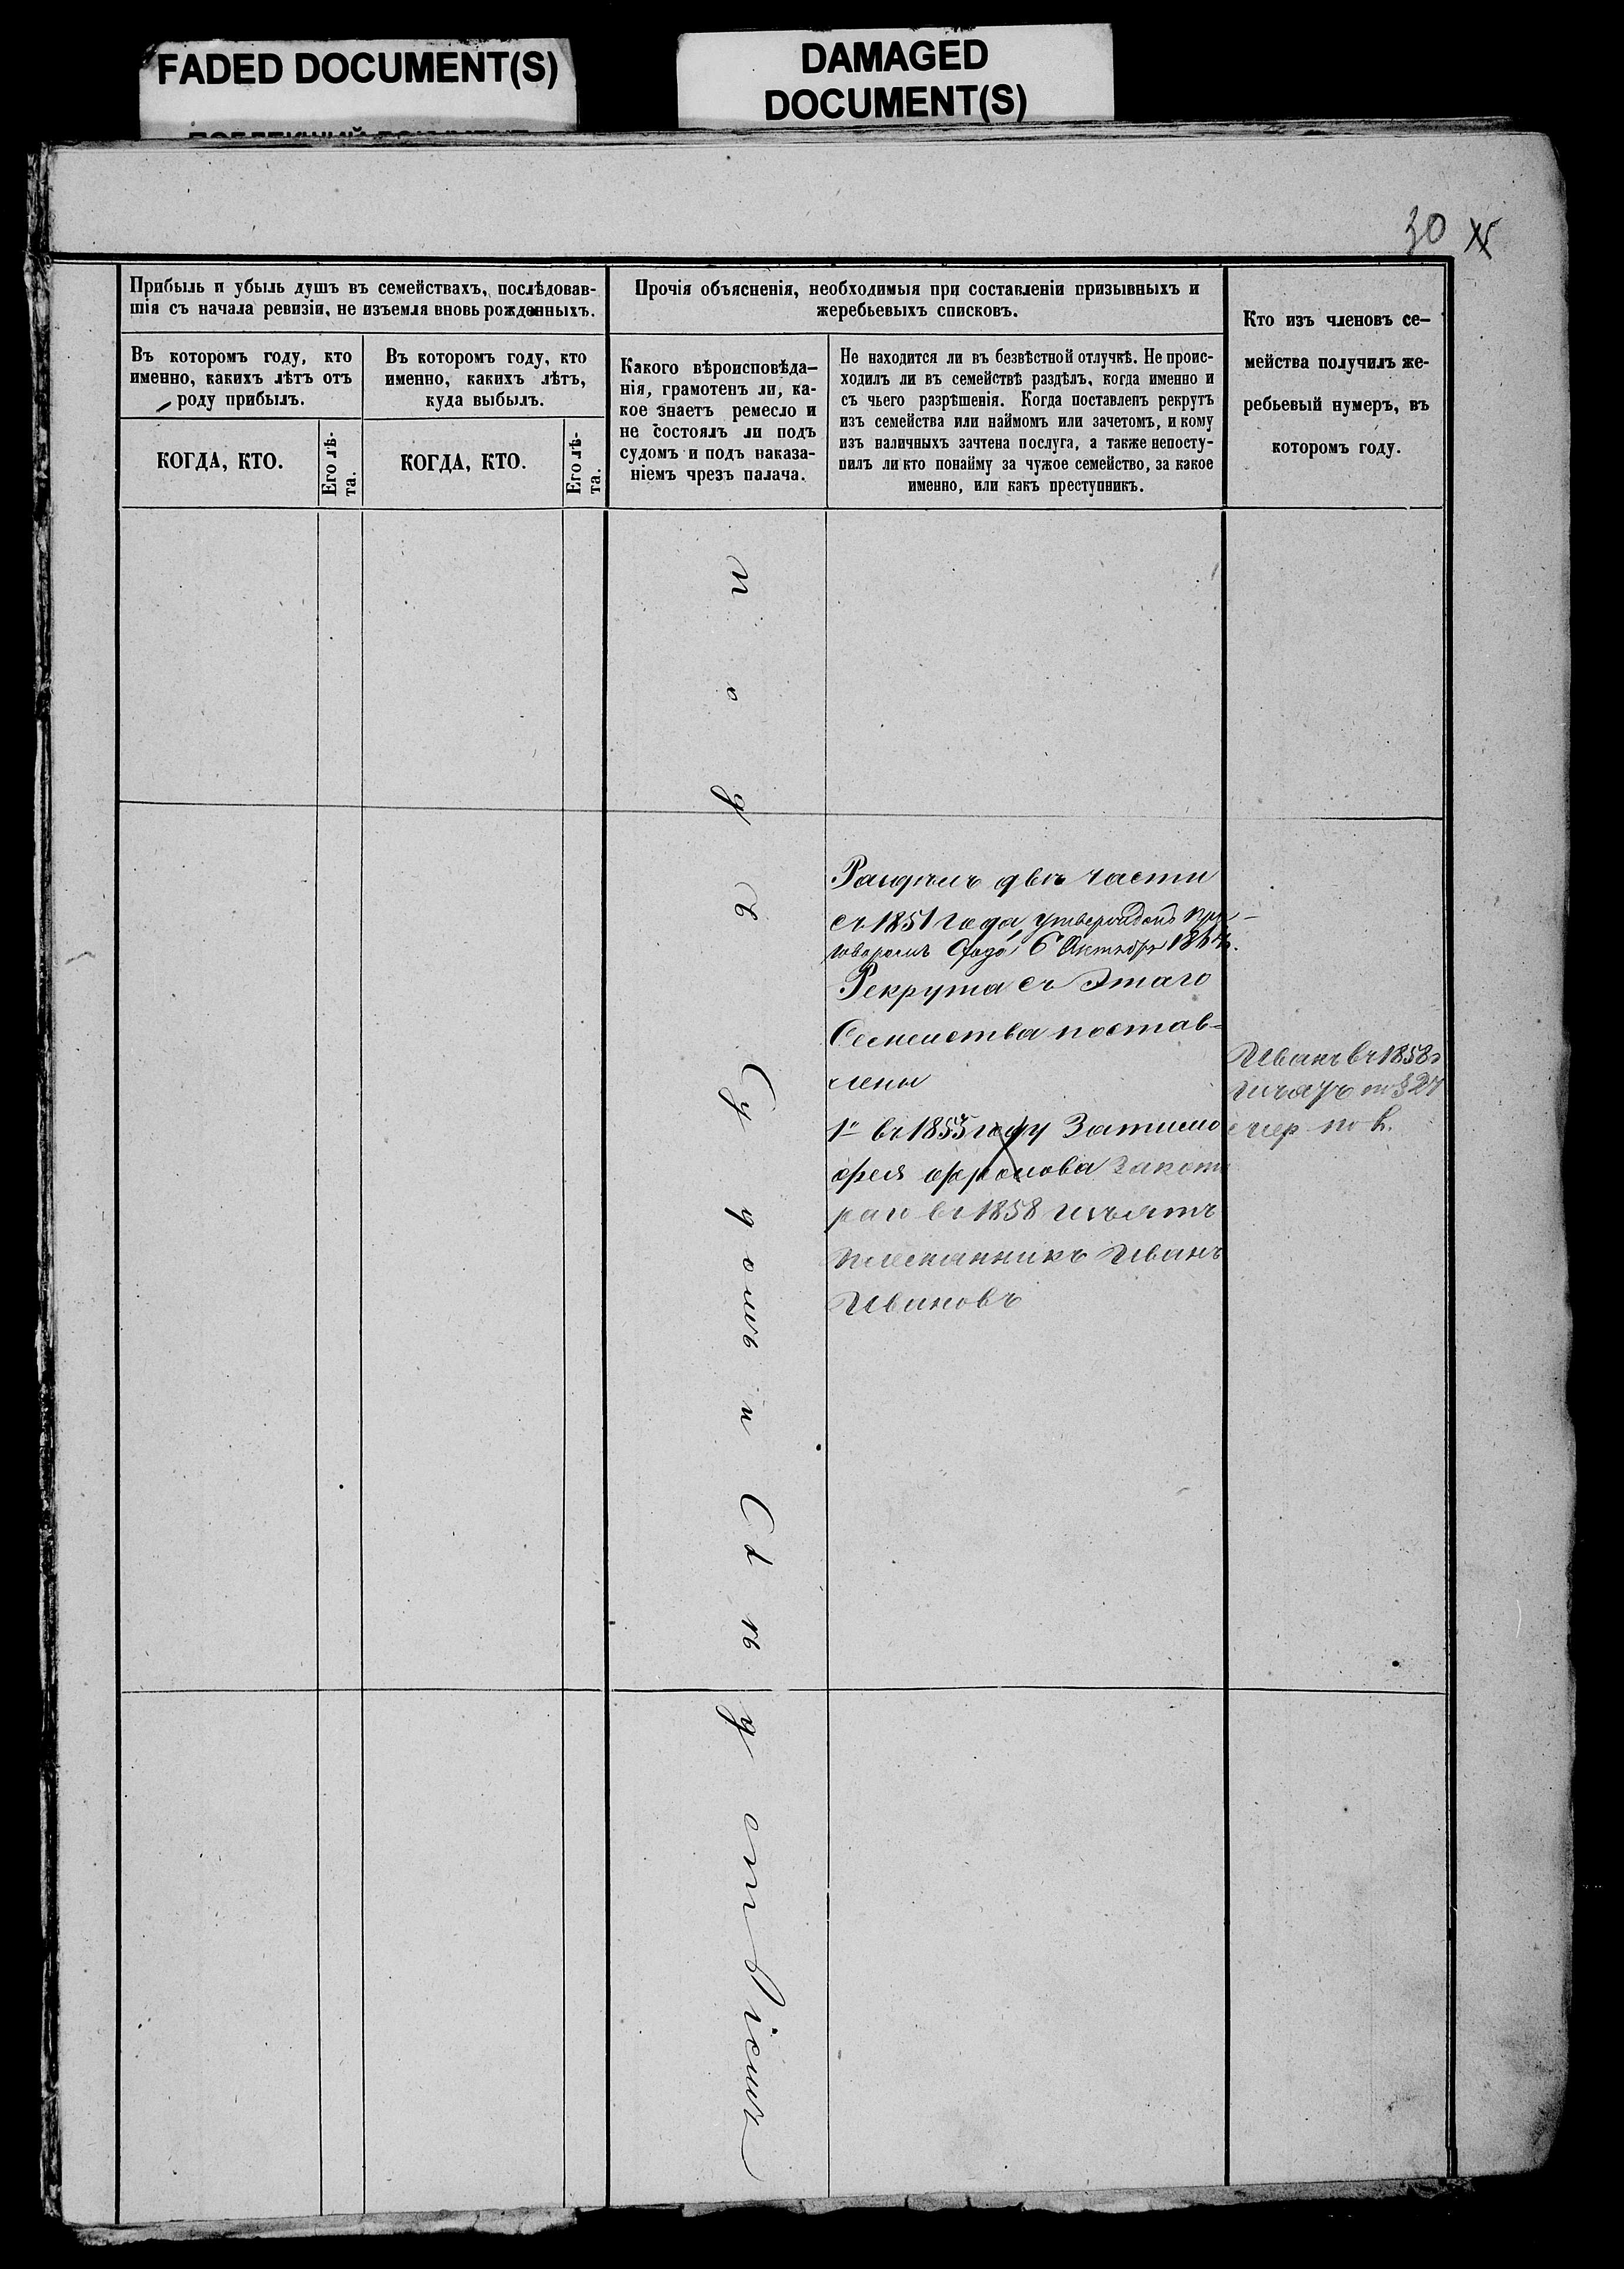 FADED DOCUMENT(S)
DAMAGED
DOCUMENT(S)
30
Прибыль и убыль душъ въ семействахъ, послѣдовав-
шія съ начала ревизіи, не изъемля вновь рожденныхъ.
Въ которомъ году, кто
именно, какихъ лѣтъ отъ
роду прибылъ.
Въ которомъ году, кто
именно, какихъ лѣтъ,
куда выбылъ.
КОГДА, КТО.
Его лѣ-
та.
КОГДА, КТО.
Его лѣ-
та.
Прочія объясненія, необходимыя при составленіи призывныхъ и
жеребьевыхъ списковъ.
Какого вѣроисповѣда-
нія, грамотенъ ли, ка-
кое знаетъ ремесло и
не состоялъ ли подъ
судомъ и подъ наказа-
ніемъ чрезъ палача.
Не находится ли въ безвѣстной отлучкѣ. Не проис-
ходилъ ли въ семействѣ раздѣлъ, когда именно и
съ чьего разрѣшенія. Когда поставленъ рекрутъ
изъ семейства или наймомъ или зачетомъ, и кому
изъ наличныхъ зачтена послуга, а также непосту-
пилъ ли кто понайму за чужое семейство, за какое
именно, или какъ преступникъ.
Кто изъ членовъ се-
мейства получилъ же-
ребьевый нумеръ, въ
которомъ году.
п о д ъ Судомъ и Слѣдствіемъ
двѣ части
съ 1851 года утвержденъ при-
говоромъ 6 Октября
Рекрута съ этаго
Семейства постав-
лены
1й въ 1855 году
въ 1858
племянникъ Иванъ
Ивановъ
Иванъ въ 1858